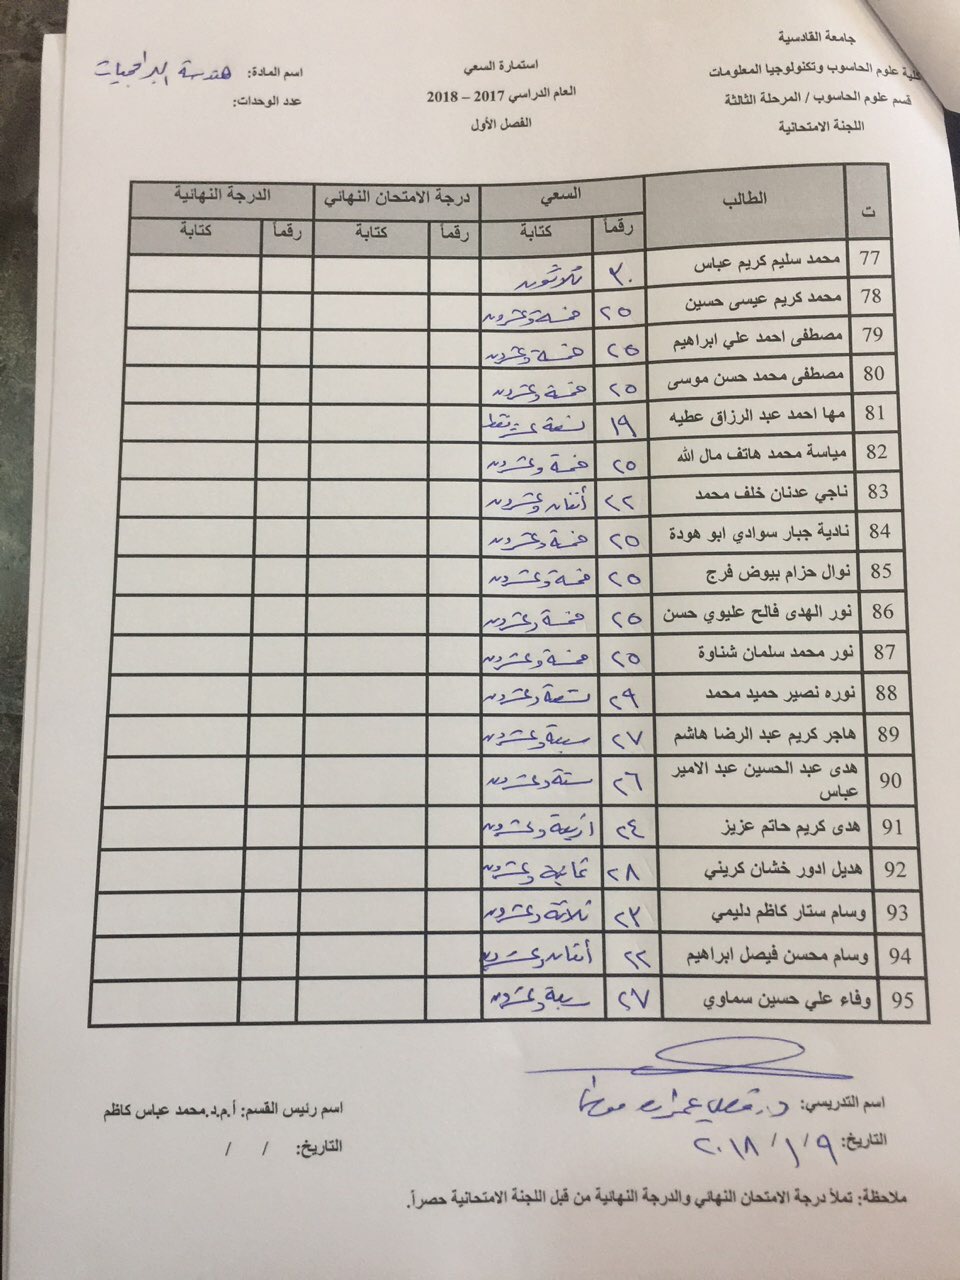 جامعة القادسية
كلية علوم الحاسوب وتكنولوجيا المعلومات
قسم علوم الحاسوب / المرحلة الثالثة
اللجنة الامتحانية
استمارة السعي
العام الدراسي 2017 – 2018
الفصل الأول
اسم المادة: هندسة البرامجيات
عدد الوحدات:
ت الطالب السعي درجة الامتحان النهائي الدرجة النهائية
رقماً كتابة رقماً كتابة رقماً كتابة
77 محمد سليم كريم عباس ٣٠ ثلاثون
78 محمد كريم عيسى حسين ٢٥ خمسة وعشرون
79 مصطفى احمد علي ابراهيم ٢٥ خمسة وعشرون
80 مصطفى محمد حسن موسى ٢٥ خمسة وعشرون
81 مها احمد عبد الرزاق عطيه ١٩ تسعة عشر فقط
82 مياسة محمد هاتف مال الله ٢٥ خمسة وعشرون
83 ناجي عدنان خلف محمد ٢٢ أثنان وعشرون
84 نادية جبار سوادي ابو هودة ٢٥ خمسة وعشرون
85 نوال حزام بيوض فرج ٢٥ خمسة وعشرون
86 نور الهدى فالح عليوي حسن ٢٥ خمسة وعشرون
87 نور محمد سلمان شناوة ٢٥ خمسة وعشرون
88 نوره نصير حميد محمد ٢٩ تسعة وعشرون
89 هاجر كريم عبد الرضا هاشم ٢٧ سبعة وعشرون
90 هدى عبد الحسين عبد الامير ٢٦ ستة وعشرون
عباس
91 هدى كريم حاتم عزيز ٢٤ اربعة وعشرون
92 هديل ادور خشان كريني ٢٨ ثمانية وعشرون
93 وسام ستار كاظم دليمي ٢٣ ثلاثة وعشرون
94 وسام محسن فيصل ابراهيم ٢٢ أثنان وعشرون
95 وفاء علي حسين سماوي ٢٧ سبعة وعشرون
اسم التدريسي: د. قصي عمران
التاريخ: ٢٠١٨/١/٩
اسم رئيس القسم: أ.م.د.محمد عباس كاظم
التاريخ: / /
ملاحظة: تملأ درجة الامتحان النهائي والدرجة النهائية من قبل اللجنة الامتحانية حصراً.